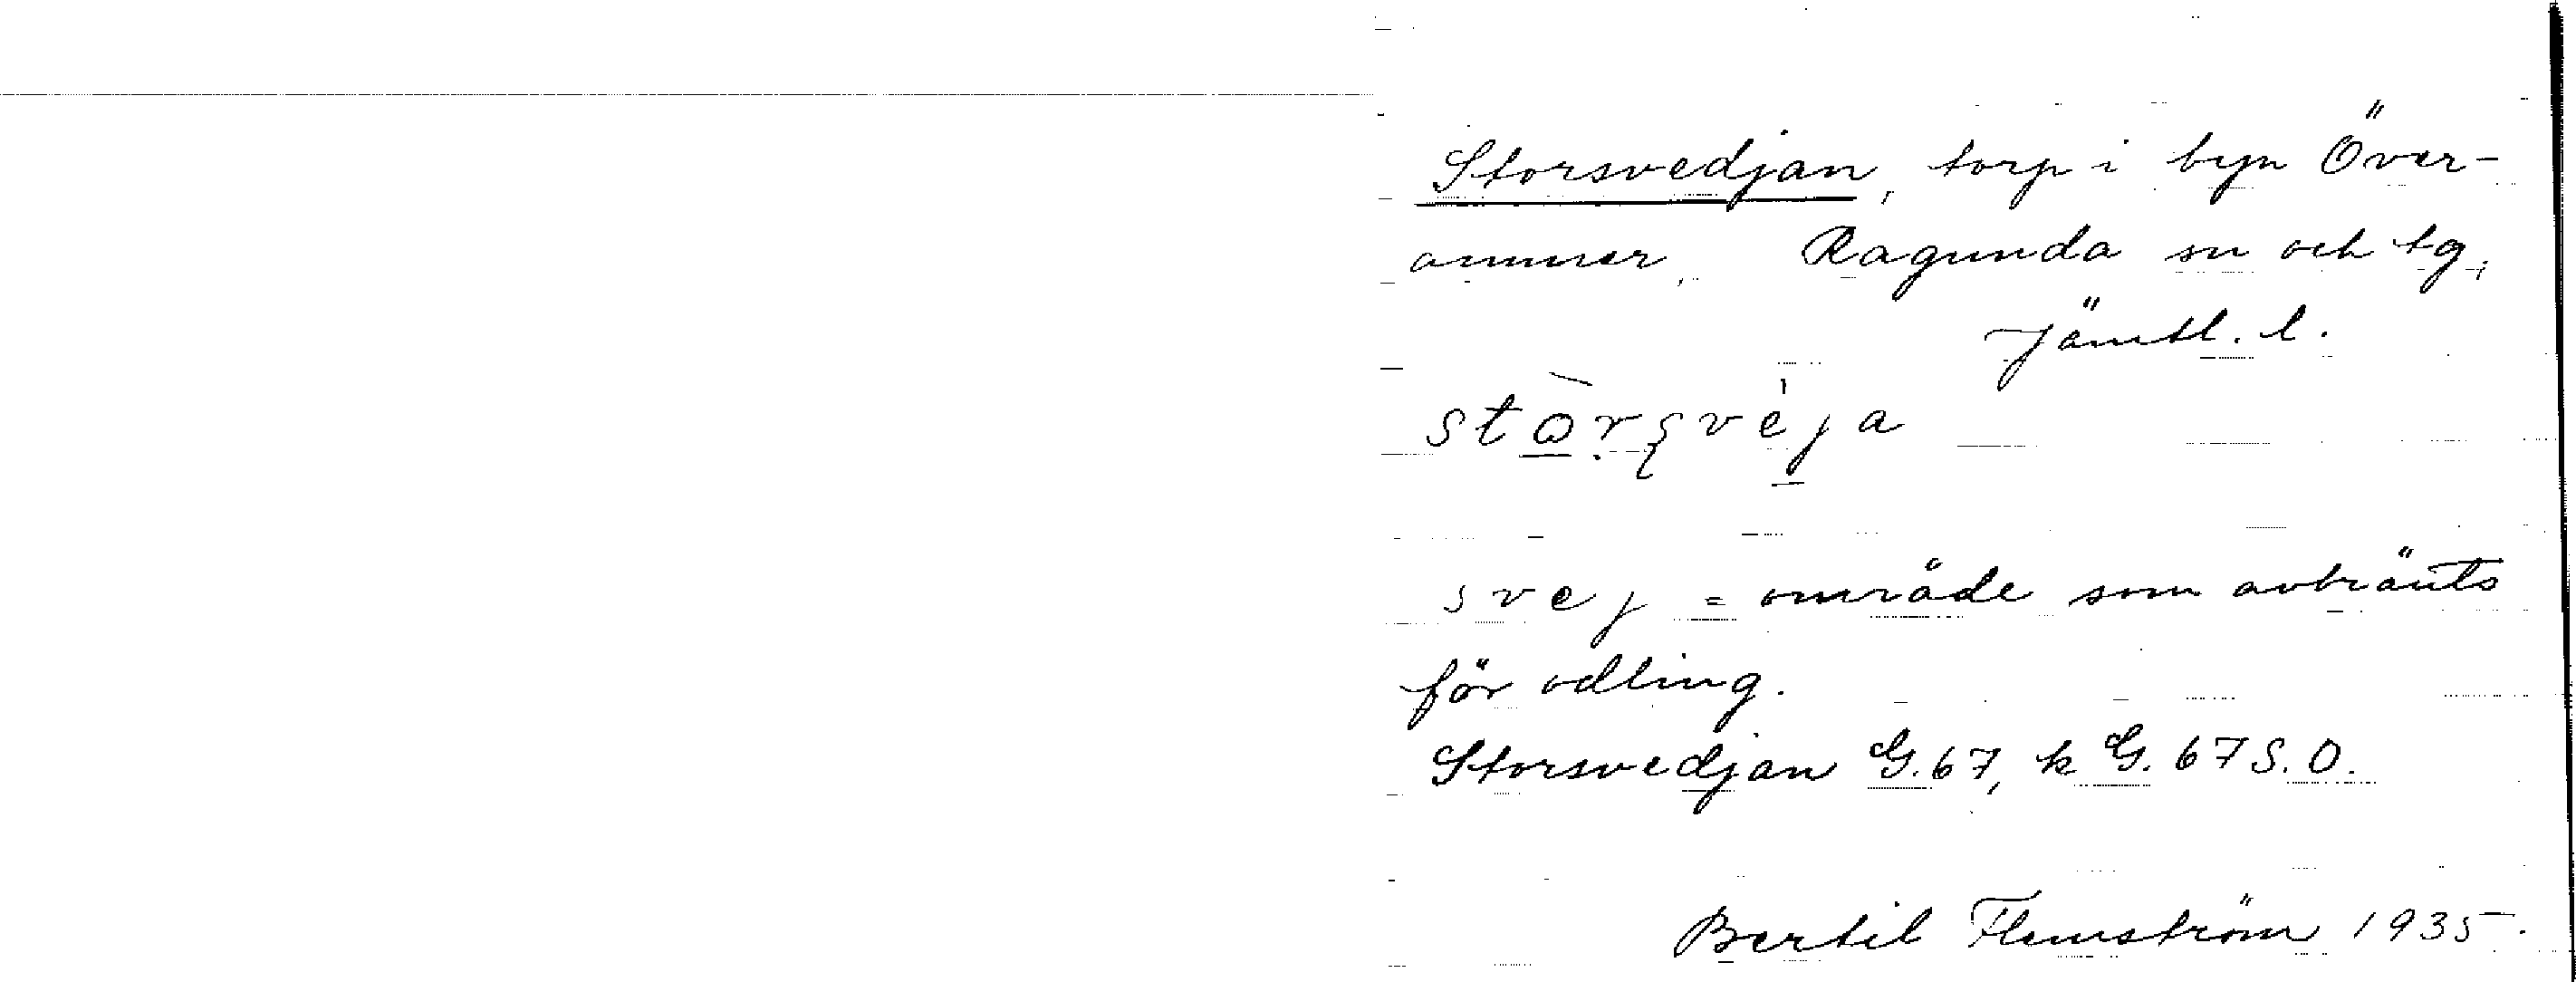 Storsvedjan, torp i byn Över-
ammer, Ragunda sn och tg,
Jämtl. l.
stòrsvèja
svej = område som avbränts
för odling.
Storsvedjan G. 67, k G. 67 S.O.
Bertil Flemström 1935.